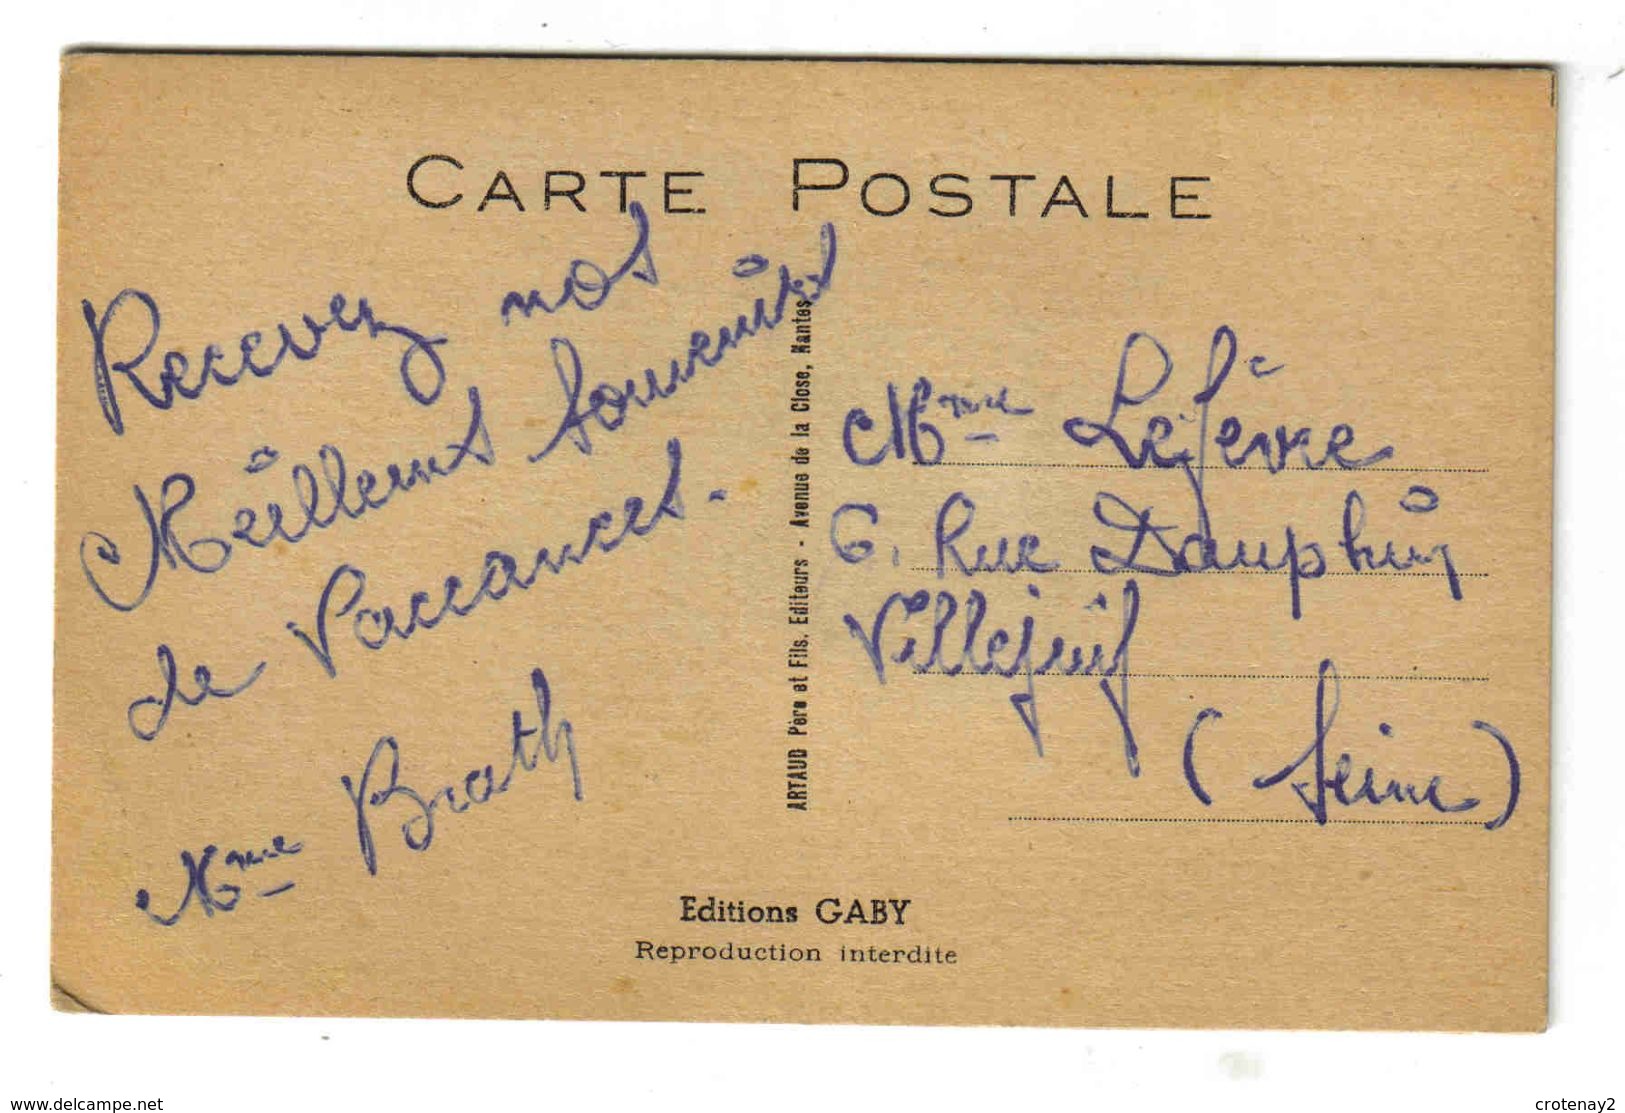 CARTE POSTALE
Recevez nos
Meilleurs Souvenirs
de Vaccances.
Mme Brath
ARTAUD Père et Fils. Editeurs - Avenue de la Close, Nantes
Mme Lefèvre
6. Rue Dauphin
Villejuif
(Seine)
Editions GABY
Reproduction interdite
www.delcampe.net
crotenay2